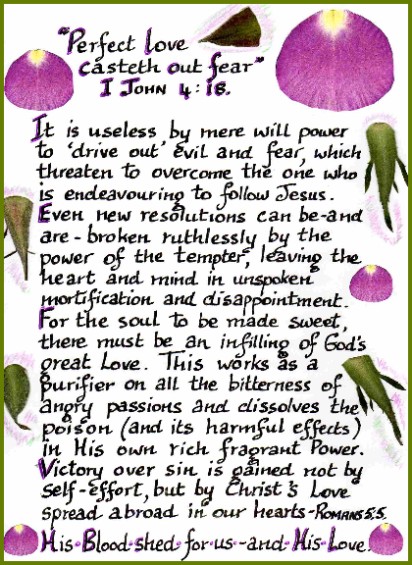 "Perfect love
casteth out fear"
I JOHN 4:18.
It is useless by mere will power
to 'drive out' evil and fear, which
threaten to overcome the one who
is endeavouring to follow Jesus.
Even new resolutions can be-and
are-broken ruthlessly by the
power of the tempter, leaving the
heart and mind in unspoken
mortification and disappointment.
For the soul to be made sweet,
there must be an infilling of God's
great Love. This works as a
purifier on all the bitterness of
angry passions and dissolves the
poison (and its harmful effects)
in His own rich fragrant Power.
Victory over sin is gained not by
self-effort, but by Christ's Love
spread abroad in our hearts-ROMANS 5:5.
His-Blood-shed-for-us-and-His-Love.